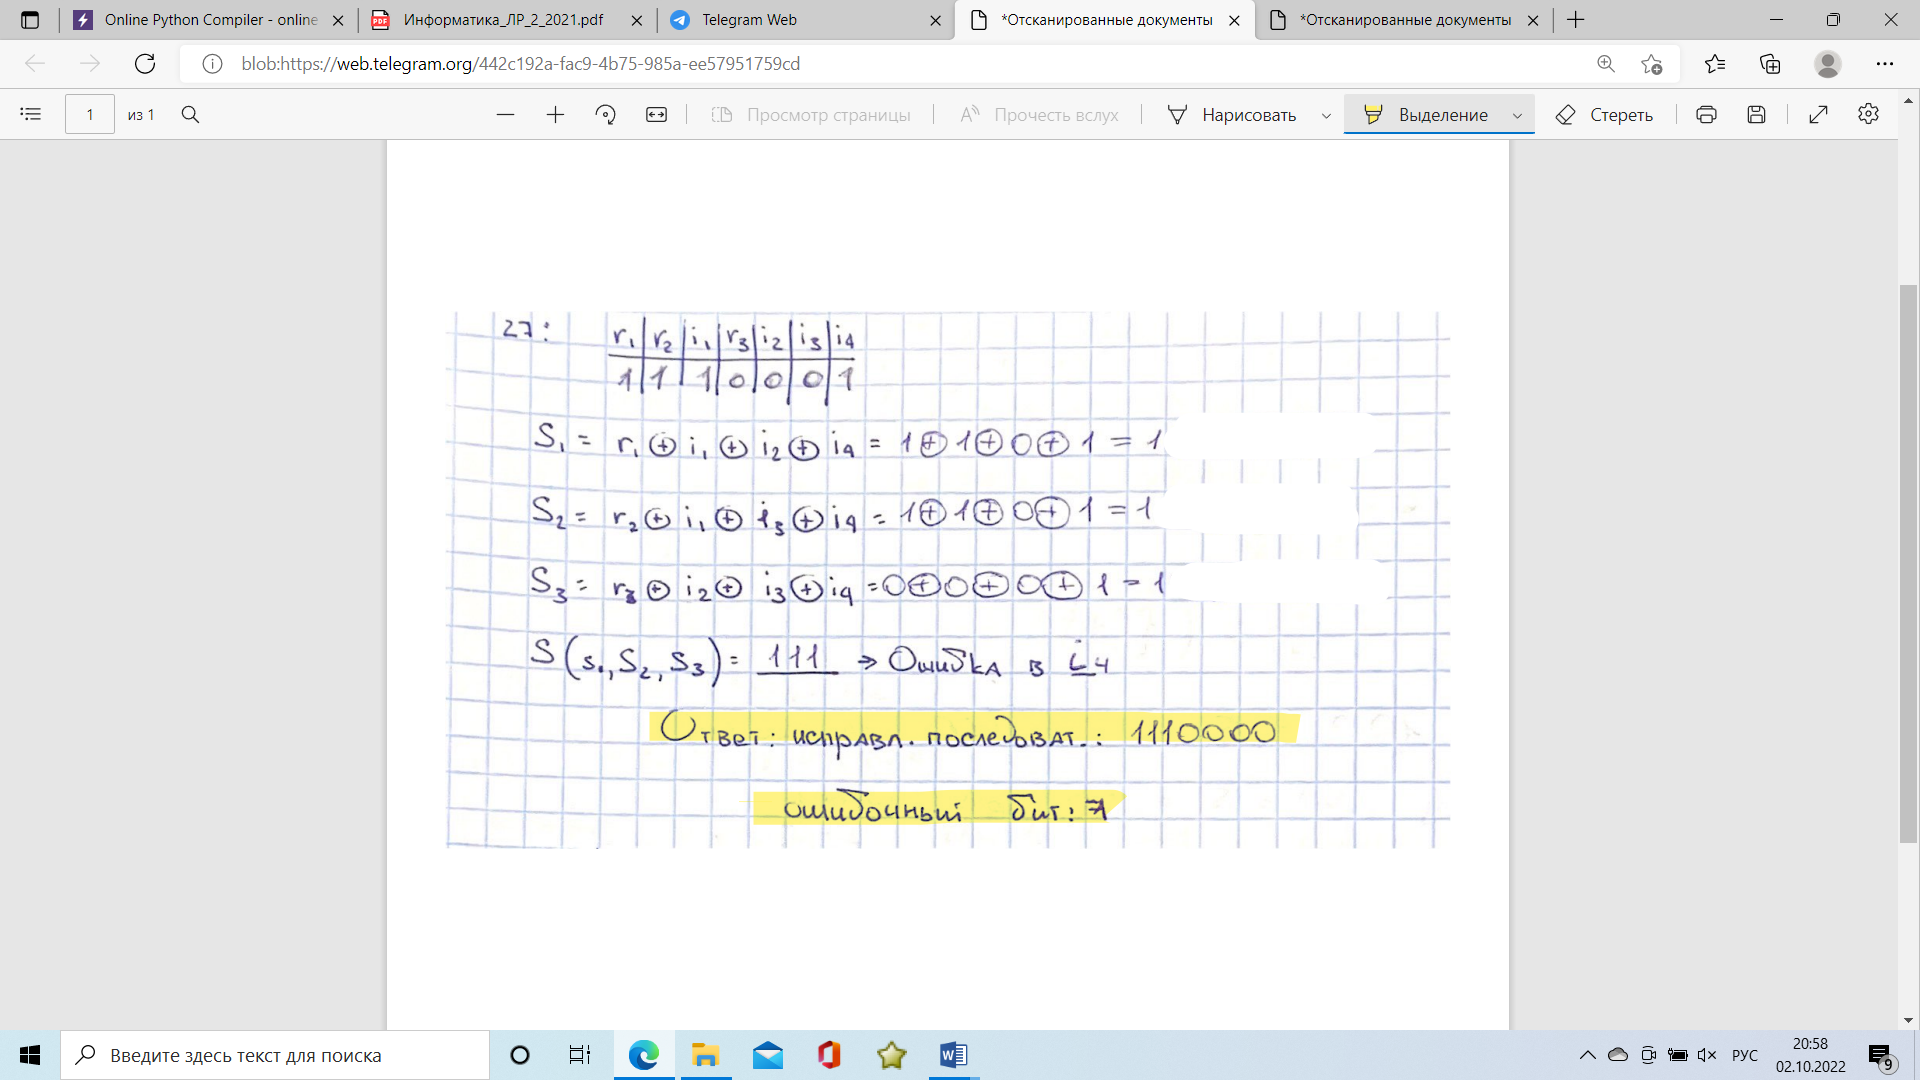 Online Python Compiler - online
Информатика_ЛР_2_2021.pdf
Telegram Web
*Отсканированные документы
*Отсканированные документы
blob:https://web.telegram.org/442c192a-fac9-4b75-985a-ee57951759cd
1 из 1
Просмотр страницы
Прочесть вслух
Нарисовать
Выделение
Стереть
27:
r₁ | r₂ | i₁ | r₃ | i₂ | i₃ | i₄
1 | 1 | 1 | 0 | 0 | 0 | 1
S₁ = r₁ ⊕ i₁ ⊕ i₂ ⊕ i₄ = 1 ⊕ 1 ⊕ 0 ⊕ 1 = 1
S₂ = r₂ ⊕ i₁ ⊕ i₃ ⊕ i₄ = 1 ⊕ 1 ⊕ 0 ⊕ 1 = 1
S₃ = r₃ ⊕ i₂ ⊕ i₃ ⊕ i₄ = 0 ⊕ 0 ⊕ 0 ⊕ 1 = 1
S (s₁, S₂, S₃) = 111 → Ошибка в i₄
Ответ: исправл. последоват.: 1110000
ошибочный бит: 7
Введите здесь текст для поиска
РУС
20:58
02.10.2022
9